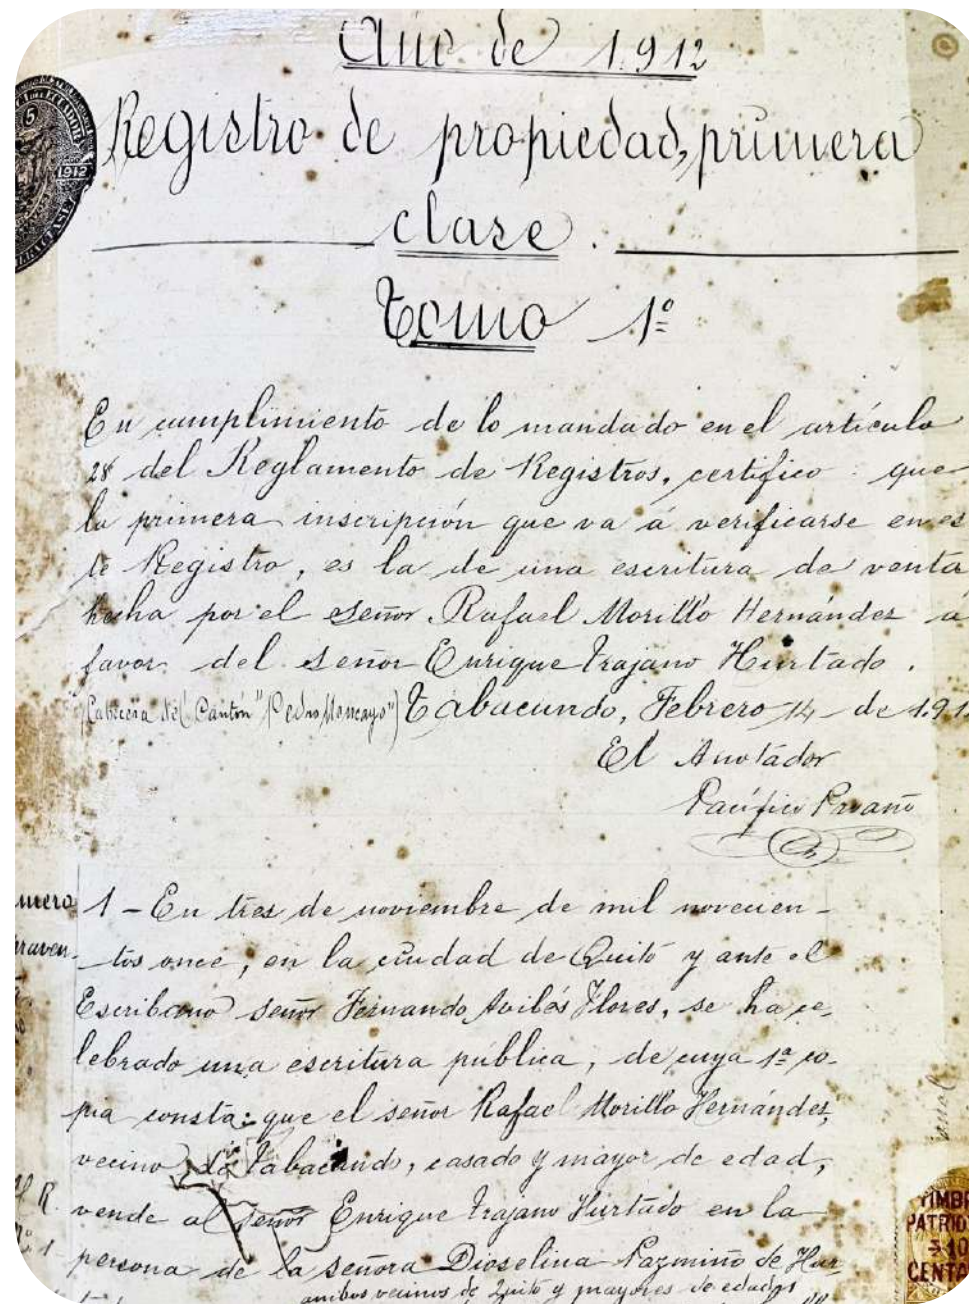 Año de 1.912
Registro de propiedad, primera
clase.
Tomo 1º
En cumplimiento de lo mandado en el artículo
28 del Reglamento de Registros, certifico: que
la primera inscripción que va á verificarse en es
te Registro, es la de una escritura de venta
hecha por el señor Rafael Morillo Hernández á
favor del señor Enrique Trajano Hurtado.
(Cabecera del Cantón "Pedro Moncayo") Tabacundo, Febrero 14 de 1.91
El Anotador
Pacífico
1912
5
mero 1 - En tres de noviembre de mil novecien-
raven- tos once, en la ciudad de Quito y ante el
Escribano señor Fernando Avilés Flores, se ha ce-
lebrado una escritura pública, de cuya 1ª co-
pia consta: que el señor Rafael Morillo Hernández,
vecino de Tabacundo, casado y mayor de edad,
vende al señor Enrique Trajano Hurtado en la
persona de la señora Dioselina Pazmiño de Hur-
ambos vecinos de Quito y mayores de edad
TIMBR
PATRIO
10
CENTA